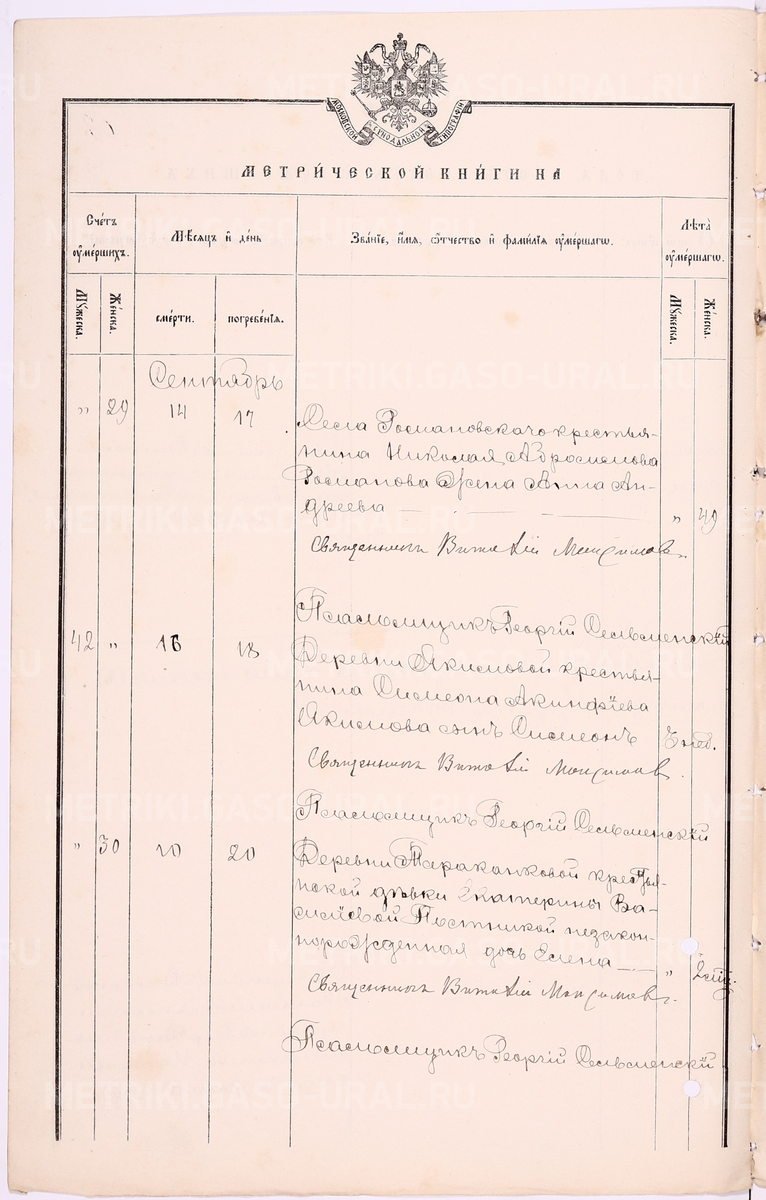 МОСКОВСКОЙ СѴНОДАЛЬНОЙ ТИПОГРАФІИ
МЕТРИ́ЧЕСКОЙ КНИ́ГИ НА
Сче́тъ ѹ҆ме́ршихъ.
Мѣ́сяцъ и҆ де́нь
Зва́нїе, и҆́мѧ, ѻ҆́тчество и҆ фами́лїѧ ѹ҆ме́ршагѡ.
Лѣ́та ѹ҆ме́ршагѡ.
Мꙋ́жеска.
Же́нска.
сме́рти.
погребе́нїѧ.
Мꙋ́жеска.
Же́нска.
Сентябрь
" 29 14 17
Села Романовскаго крестья-
нина Николая Абросимова
Романова жена Анна Ан-
дреева " 49
Священникъ Виталій Максимовъ.
Псаломщикъ Георгій Сельменскій
42 " 16 18
Деревни Якимовой крестья-
нина Симеона Акинфіева
Якимова сынъ Симеонъ 3 нед.
Священникъ Виталій Максимовъ.
Псаломщикъ Георгій Сельменскій
" 30 10 20
Деревни Тараканковой крестья-
нской дѣвки Екатерины Ва-
силіевой Постниковой незакон-
норожденная дочь Елена "
Священникъ Виталій Максимовъ.
Псаломщикъ Георгій Сельменскій
METRIKI.GASO-URAL.RU